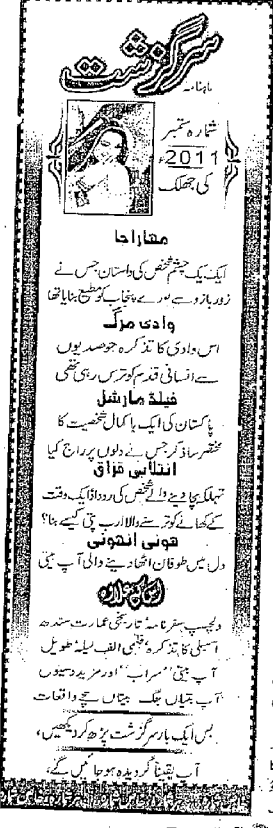 ماہنامہ
سرگزشت
شمارہ ستمبر
2011ء
کی جھلک
مهاراجا
ایک یک چشم شخص کی داستان جس نے
زور بازو سے پورے پنجاب کو مطیع بنایا تھا
وادی مرگ
اس وادی کا تذکرہ جو صدیوں
سے انسانی قدم کو ترس رہی تھی
فیلڈ مارشل
پاکستان کی ایک باکمال شخصیت کا
مختصر سا ذکر جس نے دلوں پر راج کیا
انقلابی قزاق
تہلکہ مچا دینے والے شخص کی روداد ایک وقت
کے کھانے کو ترسنے والا ارب پتی کیسے بنا؟
هونی انهونی
دل میں طوفان اٹھا دینے والی آپ بیتی
اس کے علاوہ
دلچسپ سفرنامہ تاریخی عمارت سندھ
اسمبلی کا تذکرہ فلمی الف لیلہ طویل
آپ بیتی "سراب" اور مزید دسیوں
آپ بیتیاں جگ بیتیاں سچے واقعات
بس ایک بار سرگزشت پڑھ کر دیکھیں،
آپ یقیناً گرویدہ ہو جائیں گے،